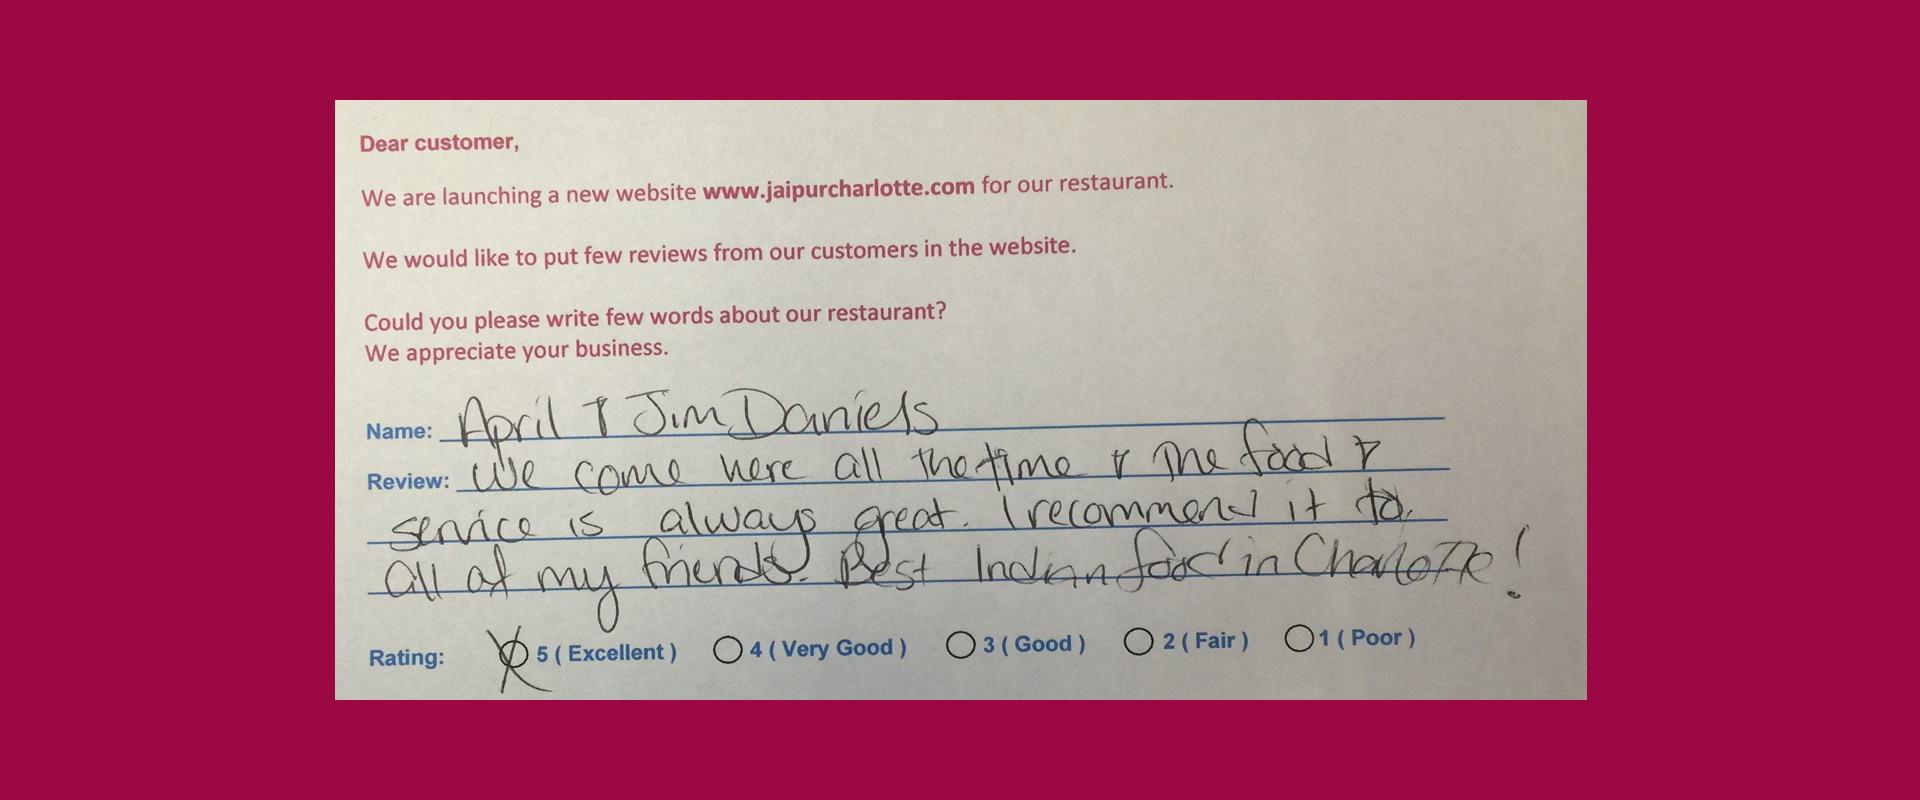 Dear customer,
We are launching a new website www.jaipurcharlotte.com for our restaurant.
We would like to put few reviews from our customers in the website.
Could you please write few words about our restaurant?
We appreciate your business.
Name: April & Jim Daniels
Review: We come here all the time & the food &
service is always great. I recommend it to
all of my friends. Best Indian food in Charlotte!
Rating: 5 ( Excellent ) 4 ( Very Good ) 3 ( Good ) 2 ( Fair ) 1 ( Poor )